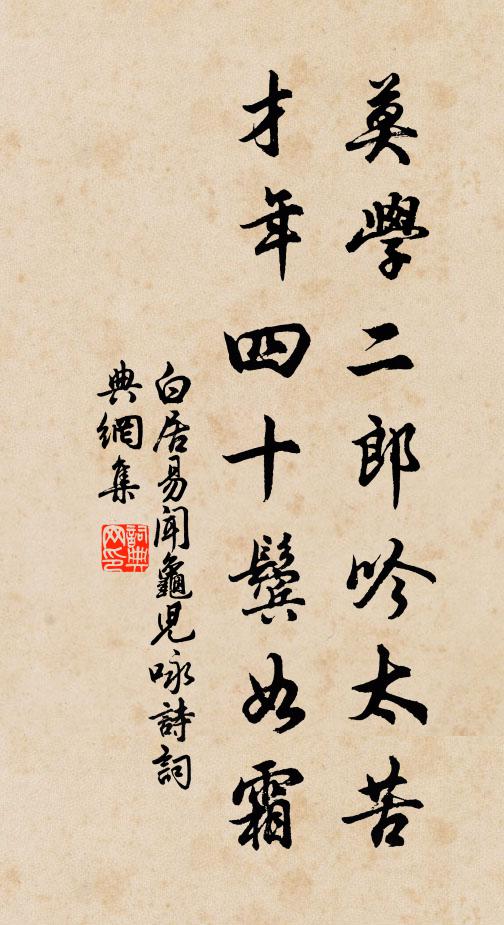 莫學二郎吟太苦
才年四十鬢如霜
白居易聞龜兒咏詩詞
典網集
詞典
网印